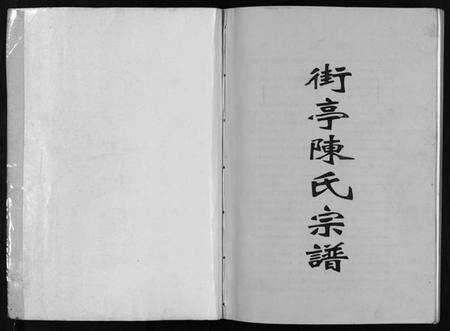 街亭陳氏宗譜